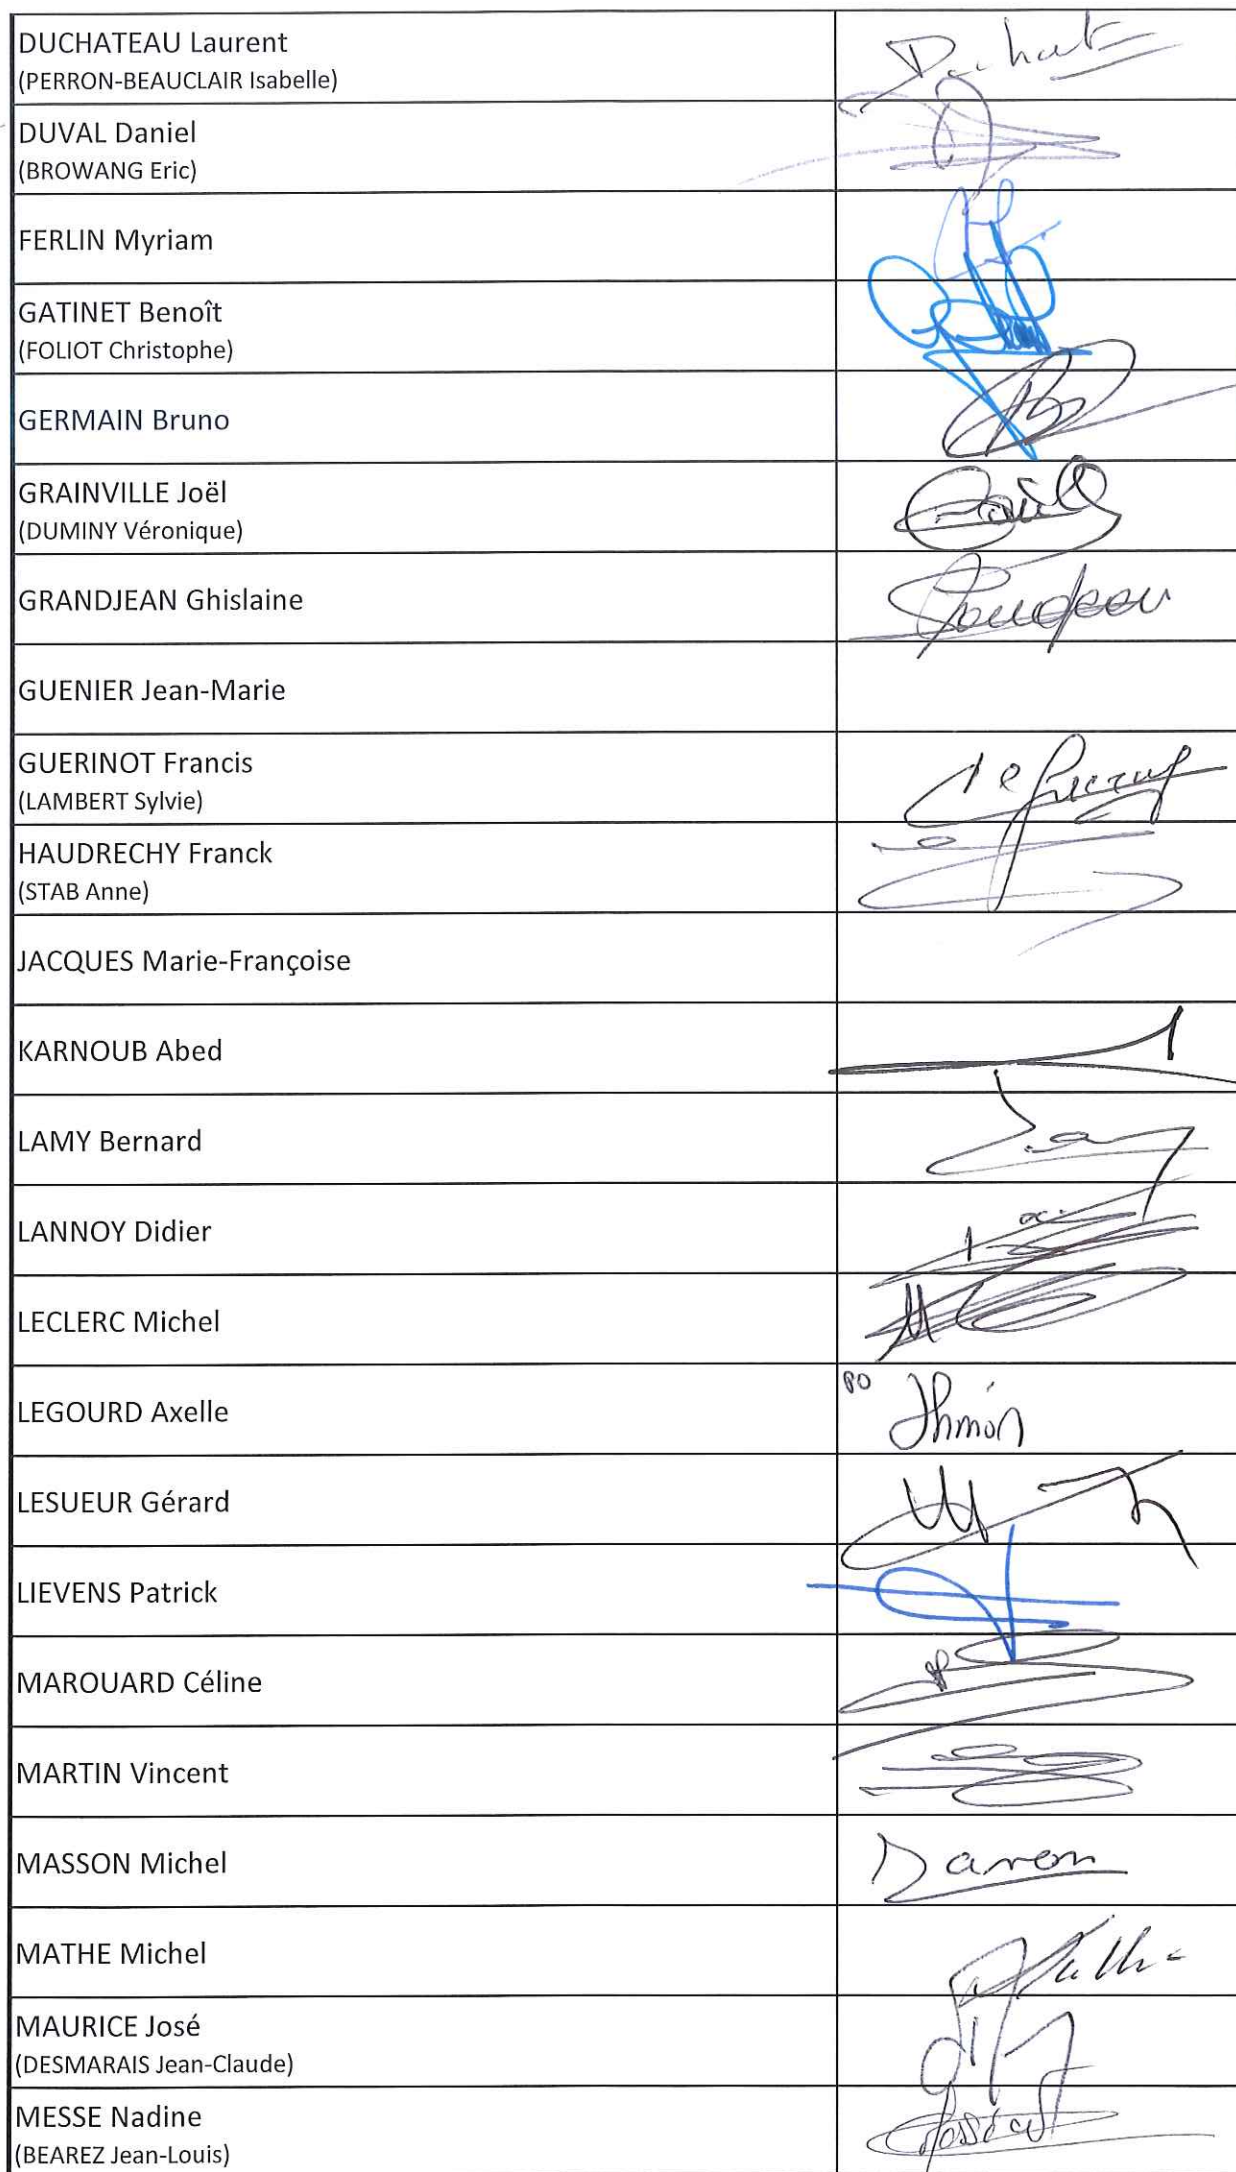 DUCHATEAU Laurent
(PERRON-BEAUCLAIR Isabelle)
DUVAL Daniel
(BROWANG Eric)
FERLIN Myriam
GATINET Benoît
(FOLIOT Christophe)
GERMAIN Bruno
GRAINVILLE Joël
(DUMINY Véronique)
GRANDJEAN Ghislaine
GUENIER Jean-Marie
GUERINOT Francis
(LAMBERT Sylvie)
HAUDRECHY Franck
(STAB Anne)
JACQUES Marie-Françoise
KARNOUB Abed
LAMY Bernard
LANNOY Didier
LECLERC Michel
LEGOURD Axelle
LESUEUR Gérard
LIEVENS Patrick
MAROUARD Céline
MARTIN Vincent
MASSON Michel
MATHE Michel
MAURICE José
(DESMARAIS Jean-Claude)
MESSE Nadine
(BEAREZ Jean-Louis)